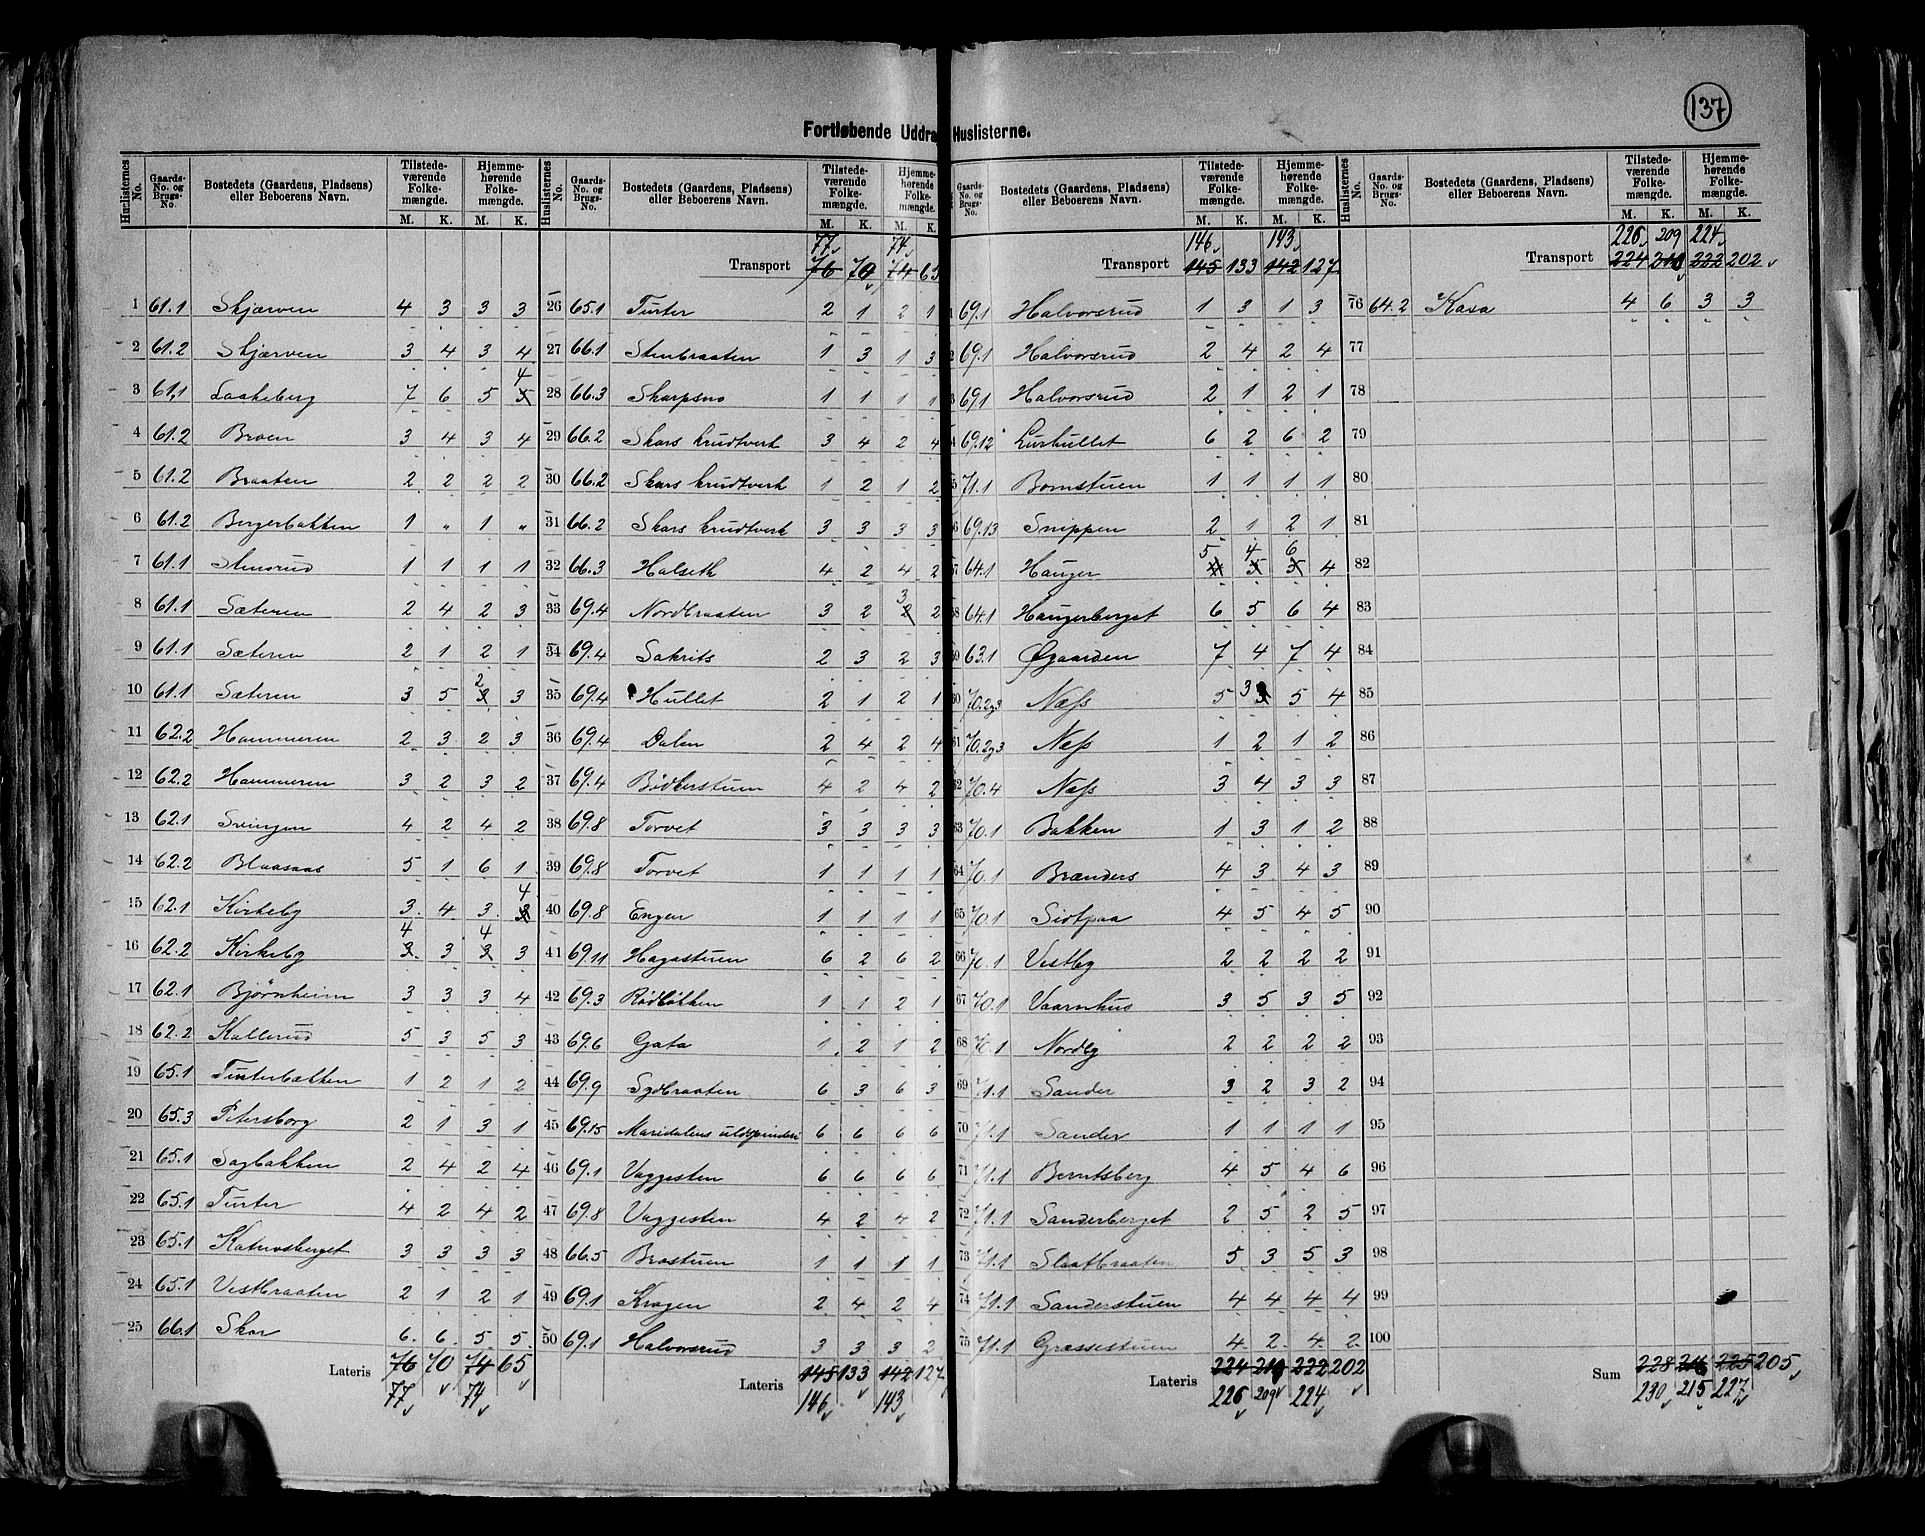 137
Fortløbende Uddra Huslisterne.
Huslisternes No. Gaards-No. og Brugs-No. Bostedets (Gaardens, Pladsens) eller Beboerens Navn. Tilstedeværende Folkemængde. M. K. Hjemmehørende Folkemængde. M. K.
1 61.1 Skjærven 4 3 3 3
2 61.2 Skjærven 3 4 3 4
3 61.1 Laakeberg 7 6 5 5 4
4 61.2 Broen 3 4 3 4
5 61.2 Braaten 2 2 2 2
6 61.2 Birgerbakken 1 " 1 "
7 61.1 Stensrud 1 1 1 1
8 61.1 Sæteren 2 4 2 3
9 61.1 Sæteren 2 1 2 1
10 61.1 Sæteren 3 5 3 2 3
11 62.2 Hammeren 2 3 2 3
12 62.2 Hammeren 3 2 3 2
13 62.1 Svingen 4 2 4 2
14 62.2 Blaasaas 5 1 6 1
15 62.1 Kirkeby 3 4 3 3 4
16 62.2 Kirkeby 3 4 3 3 4 3
17 62.1 Bjørnheim 3 3 3 4
18 62.2 Kallerud 5 3 5 3
19 65.1 Turterbakken 1 2 1 2
20 65.3 Petersborg 2 1 3 1
21 65.1 Sagbakken 2 4 2 4
22 65.1 Turter 4 2 4 2
23 65.1 Katnosberget 3 3 3 3
24 65.1 Vestbraaten 2 1 2 1
25 66.1 Skar 6 6 5 5
Lateris 76 70 74 65
77 74
Huslisternes No. Gaards-No. og Brugs-No. Bostedets (Gaardens, Pladsens) eller Beboerens Navn. Tilstedeværende Folkemængde. M. K. Hjemmehørende Folkemængde. M. K.
77 74
Transport 76 70 74 65
26 65.1 Turter 2 1 2 1
27 66.1 Stenbraaten 1 3 1 3
28 66.3 Skarpsno 1 1 1 1
29 66.2 Skars krudtverk 3 4 2 4
30 66.2 Skars krudtverk 1 2 1 2
31 66.2 Skars krudtverk 3 3 3 3
32 66.3 Halseth 4 2 4 2
33 69.4 Nordbraaten 3 2 2 3 2
34 69.4 Sakrits 2 3 2 3
35 69.4 Hullet 2 1 2 1
36 69.4 Dalen 2 4 2 4
37 69.4 Bødkerstuen 4 2 4 2
38 69.8 Torvet 3 3 3 3
39 69.8 Torvet 1 1 1 1
40 69.8 Engen 1 1 1 1
41 69.11 Hagastuen 6 2 6 2
42 69.3 Rødløkken 1 1 2 1
43 69.6 Gata 1 2 1 2
44 69.9 Sydbraaten 6 3 6 3
45 69.15 Maridalens uldspinderi 6 6 6 6
46 69.1 Vaggesten 6 6 6 6
47 69.8 Vaggesten 4 2 4 2
48 66.5 Brostuen 1 1 1 1
49 69.1 Kragen 2 4 2 4
50 69.1 Halvorsrud 3 3 3 2
Lateris 145 133 142 127
146 143
Gaards-No. og Brugs-No. Bostedets (Gaardens, Pladsens) eller Beboerens Navn. Tilstedeværende Folkemængde. M. K. Hjemmehørende Folkemængde. M. K.
146 143
Transport 145 133 142 127
1 69.1 Halvorsrud 1 3 1 3
2 69.1 Halvorsrud 2 4 2 4
3 69.1 Halvorsrud 2 1 2 1
4 69.12 Lurhullet 6 2 6 2
5 71.1 Bomstuen 1 1 1 1
6 69.13 Snippen 2 1 2 1
57 64.1 Hauger 4 5 5 4 5 6 4
58 64.1 Haugerberget 6 5 6 4
59 63.1 Øgaarden 7 4 7 4
60 70.2 og 3 Næss 5 3 5 4
61 70.2 og 3 Næss 1 2 1 2
62 70.4 Næss 3 4 3 3
63 70.1 Bakken 1 3 1 2
64 70.1 Brænders 4 3 4 3
65 70.1 Sidtpaa 4 5 4 5
66 70.1 Vestby 2 2 2 2
67 70.1 Vaarnhus 3 5 3 5
68 70.1 Nordby 2 2 2 2
69 71.1 Sander 3 2 3 2
70 71.1 Sander 1 1 1 1
71 71.1 Berntsberg 4 5 4 6
72 71.1 Sanderberget 2 5 2 5
73 71.1 Slaatbraaten 5 3 5 3
74 71.1 Sanderstuen 4 4 4 4
75 71.1 Græssestuen 4 2 4 2
Lateris 224 210 222 202
226 209 224
Huslisternes No. Gaards-No. og Brugs-No. Bostedets (Gaardens, Pladsens) eller Beboerens Navn. Tilstedeværende Folkemængde. M. K. Hjemmehørende Folkemængde. M. K.
226 209 224
Transport 224 210 222 202
76 64.2 Kasa 4 6 3 3
77
78
79
80
81
82
83
84
85
86
87
88
89
90
91
92
93
94
95
96
97
98
99
100
Sum 228 216 225 205
230 215 227